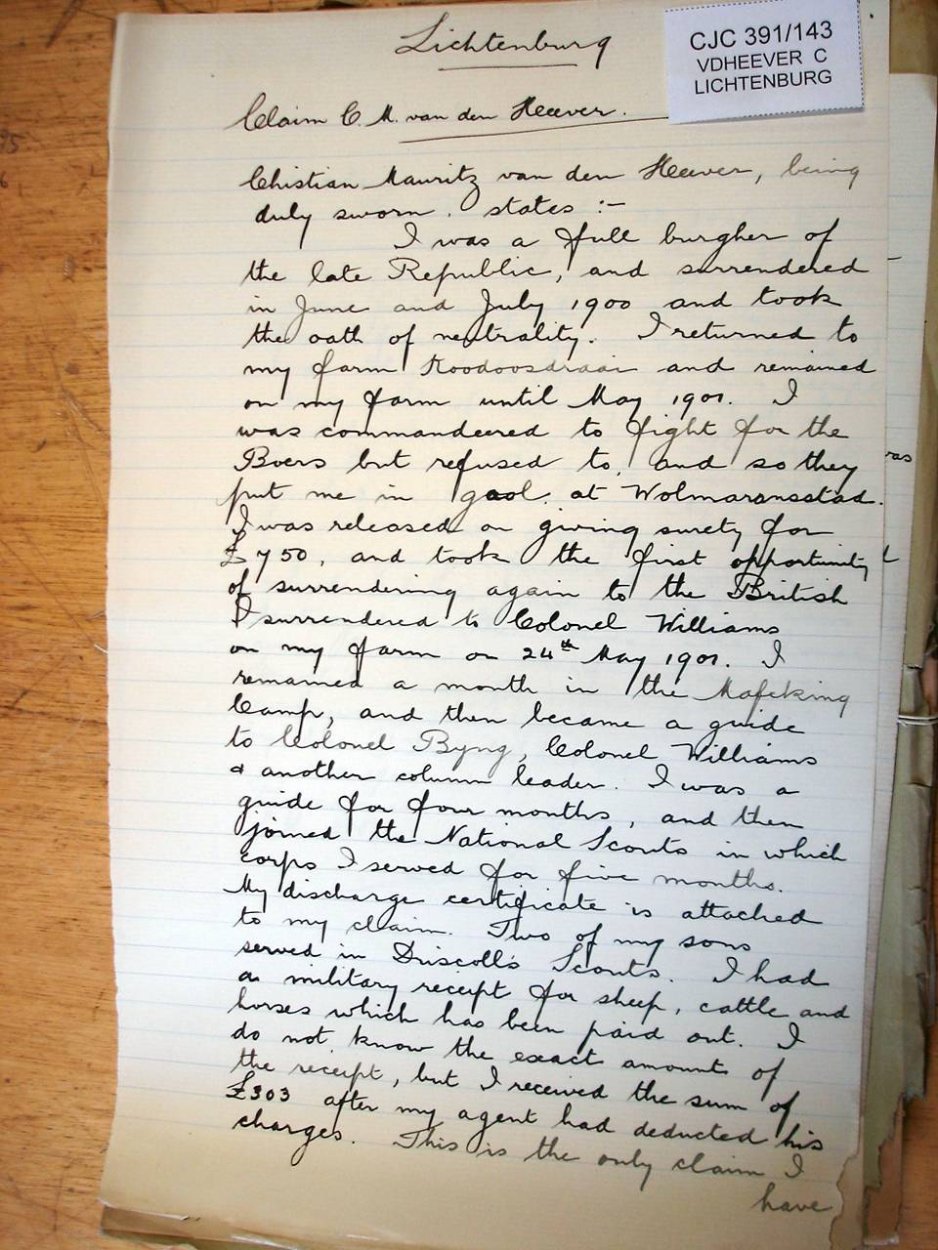 Lichtenburg
CJC 391/143
VDHEEVER C
LICHTENBURG
Claim C. M. van den Heever.
Christian Mauritz van den Heever, being
duly sworn. states :-
I was a full burgher of
the late Republic, and surrendered
in June and July 1900 and took
the oath of neutrality. I returned to
my farm Koodoosdraai and remained
on my farm until May 1901. I
was commandeered to fight for the
Boers but refused to, and so they
put me in gaol. at Wolmaransstad.
I was released on giving surety for
£750, and took the first opportunity
of surrendering again to the British
I surrendered to Colonel Williams
on my farm on 24th May 1901. I
remained a month in the Mafeking
Camp, and then became a guide
to Colonel Byng, Colonel Williams
& another column leader. I was a
guide for four months, and then
joined the National Scouts in which
corps I served for five months.
My discharge certificate is attached
to my claim. Two of my sons
served in Driscoll's Scouts. I had
a military receipt for sheep, cattle and
horses which has been paid out. I
do not know the exact amounts of
the receipt, but I received the sum of
£303 after my agent had deducted his
charges. This is the only claim I
have
was